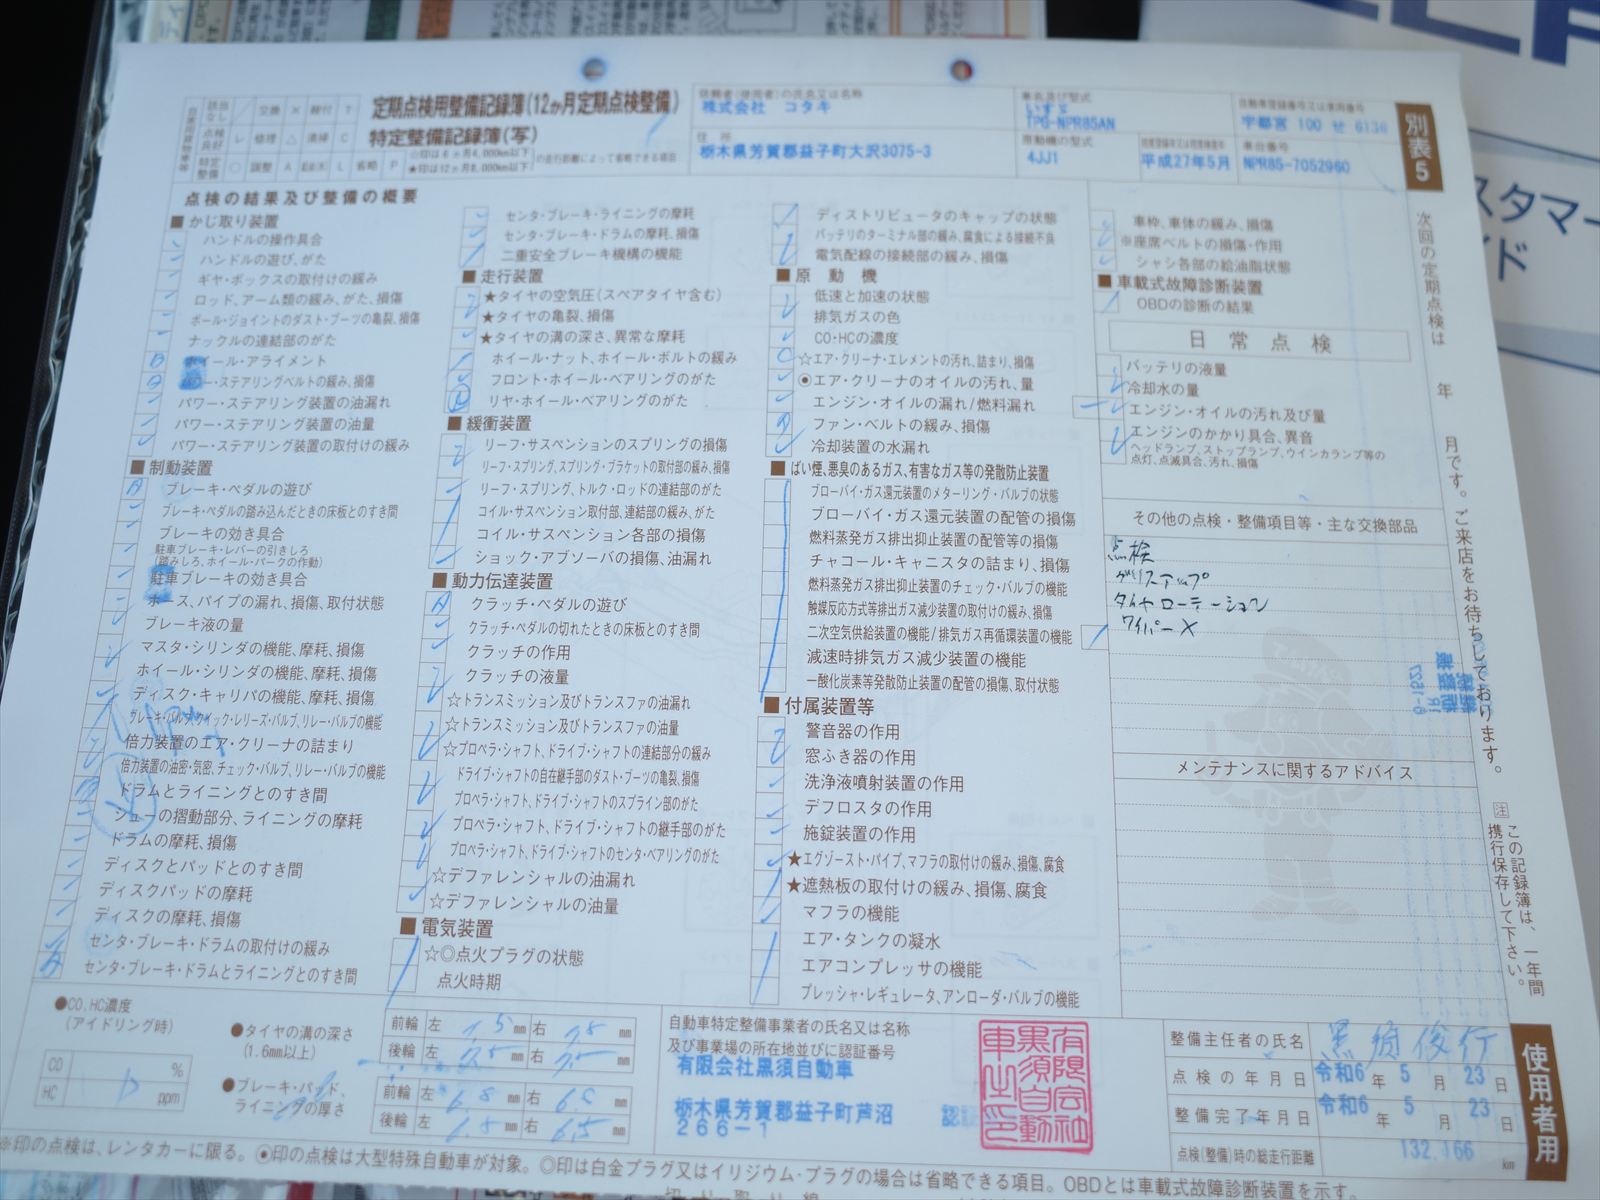 定期点検用整備記録簿(12か月定期点検整備)
特定整備記録簿(写)
☆印は6ヵ月6,000km以下
★印は12ヵ月8,000km以下
の走行距離によって省略できる項目
自家用貨物車等
該当なし 交換 × 締付 T
点検良好 レ 修理 △ 清掃 C
特定整備 ○ 調整 A 給油(水) L 省略 P
依頼者(使用者)の氏名又は名称
株式会社 コタキ
住所
栃木県芳賀郡益子町大沢3075-3
車名及び型式
いすゞ
TPG-NPR85AN
原動機の型式
4JJ1
平成27年5月
自動車登録番号又は車両番号
宇都宮 100 せ 6136
車台番号
NPR85-7052960
別表5
点検の結果及び整備の概要
■かじ取り装置
ハンドルの操作具合
ハンドルの遊び、がた
ギヤ・ボックスの取付けの緩み
ロッド、アーム類の緩み、がた、損傷
ボール・ジョイントのダスト・ブーツの亀裂、損傷
ナックルの連結部のがた
ホイール・アライメント
パワー・ステアリングベルトの緩み、損傷
パワー・ステアリング装置の油漏れ
パワー・ステアリング装置の油量
パワー・ステアリング装置の取付けの緩み
■制動装置
ブレーキ・ペダルの遊び
ブレーキ・ペダルの踏み込んだときの床板とのすき間
ブレーキの効き具合
駐車ブレーキ・レバーの引きしろ
(踏みしろ、ホイール・パークの作動)
駐車ブレーキの効き具合
ホース、パイプの漏れ、損傷、取付状態
ブレーキ液の量
マスタ・シリンダの機能、摩耗、損傷
ホイール・シリンダの機能、摩耗、損傷
ディスク・キャリパの機能、摩耗、損傷
ブレーキ・バルブ、クイック・レリーズ・バルブ、リレー・バルブの機能
倍力装置のエア・クリーナの詰まり
倍力装置の油密・気密、チェック・バルブ、リレー・バルブの機能
ドラムとライニングとのすき間
シューの摺動部分、ライニングの摩耗
ドラムの摩耗、損傷
ディスクとパッドとのすき間
ディスクパッドの摩耗
ディスクの摩耗、損傷
センタ・ブレーキ・ドラムの取付けの緩み
センタ・ブレーキ・ドラムとライニングとのすき間
センタ・ブレーキ・ライニングの摩耗
センタ・ブレーキ・ドラムの摩耗、損傷
二重安全ブレーキ機構の機能
■走行装置
★タイヤの空気圧(スペアタイヤ含む)
★タイヤの亀裂、損傷
★タイヤの溝の深さ、異常な摩耗
ホイール・ナット、ホイール・ボルトの緩み
フロント・ホイール・ベアリングのがた
リヤ・ホイール・ベアリングのがた
■緩衝装置
リーフ・サスペンションのスプリングの損傷
リーフ・スプリング、スプリング・ブラケットの取付部の緩み、損傷
リーフ・スプリング、トルク・ロッドの連結部のがた
コイル・サスペンション取付部、連結部の緩み、がた
コイル・サスペンション各部の損傷
ショック・アブソーバの損傷、油漏れ
■動力伝達装置
クラッチ・ペダルの遊び
クラッチ・ペダルの切れたときの床板とのすき間
クラッチの作用
クラッチの液量
☆トランスミッション及びトランスファの油漏れ
☆トランスミッション及びトランスファの油量
☆プロペラ・シャフト、ドライブ・シャフトの連結部分の緩み
ドライブ・シャフトの自在継手部のダスト・ブーツの亀裂、損傷
プロペラ・シャフト、ドライブ・シャフトのスプライン部のがた
プロペラ・シャフト、ドライブ・シャフトの継手部のがた
プロペラ・シャフト、ドライブ・シャフトのセンタ・ベアリングのがた
☆デファレンシャルの油漏れ
☆デファレンシャルの油量
■電気装置
☆◎点火プラグの状態
点火時期
ディストリビュータのキャップの状態
バッテリのターミナル部の緩み、腐食による接続不良
電気配線の接続部の緩み、損傷
■原動機
低速と加速の状態
排気ガスの色
CO・HCの濃度
☆エア・クリーナ・エレメントの汚れ、詰まり、損傷
◉エア・クリーナのオイルの汚れ、量
エンジン・オイルの漏れ/燃料漏れ
ファン・ベルトの緩み、損傷
冷却装置の水漏れ
■ばい煙、悪臭のあるガス、有害なガス等の発散防止装置
ブローバイ・ガス還元装置のメターリング・バルブの状態
ブローバイ・ガス還元装置の配管の損傷
燃料蒸発ガス排出抑止装置の配管等の損傷
チャコール・キャニスタの詰まり、損傷
燃料蒸発ガス排出抑止装置のチェック・バルブの機能
触媒反応方式等排出ガス減少装置の取付けの緩み、損傷
二次空気供給装置の機能/排気ガス再循環装置の機能
減速時排気ガス減少装置の機能
一酸化炭素等発散防止装置の配管の損傷、取付状態
■付属装置等
警音器の作用
窓ふき器の作用
洗浄液噴射装置の作用
デフロスタの作用
施錠装置の作用
★エグゾースト・パイプ、マフラの取付けの緩み、損傷、腐食
★遮熱板の取付けの緩み、損傷、腐食
マフラの機能
エア・タンクの凝水
エアコンプレッサの機能
プレッシャ・レギュレータ、アンローダ・バルブの機能
車枠、車体の緩み、損傷
※座席ベルトの損傷・作用
シャシ各部の給油脂状態
■車載式故障診断装置
OBDの診断の結果
日常点検
バッテリの液量
冷却水の量
エンジン・オイルの汚れ及び量
エンジンのかかり具合、異音
ヘッドランプ、ストップランプ、ウインカランプ等の
点灯、点滅具合、汚れ、損傷
その他の点検・整備項目等・主な交換部品
点検
グリスアップ
タイヤローテーション
ワイパー×
メンテナンスに関するアドバイス
次回の定期点検は 年 月です。ご来店をお待ちしております。
注 この記録簿は、一年間
携行保存して下さい。
●CO、HC濃度
(アイドリング時)
CO %
HC ppm
●タイヤの溝の深さ
(1.6mm以上)
前輪 左 7.5 mm 右 7.8 mm
後輪 左 7.5 mm 右 7.5 mm
●ブレーキ・パッド、
ライニングの厚さ
前輪 左 6.8 mm 右 6.8 mm
後輪 左 6.5 mm 右 6.5 mm
自動車特定整備事業者の氏名又は名称
及び事業場の所在地並びに認証番号
有限会社黒須自動車
栃木県芳賀郡益子町芦沼
266-1
有限会社黒須自動車之印
整備主任者の氏名 黒須俊行
点検の年月日 令和6年5月23日
整備完了年月日 令和6年5月23日
点検(整備)時の総走行距離 132,166 km
使用者用
※印の点検は、レンタカーに限る。◉印の点検は大型特殊自動車が対象。◎印は白金プラグ又はイリジウム・プラグの場合は省略できる項目。OBDとは車載式故障診断装置を示す。
切り取り線
スタマー
イド